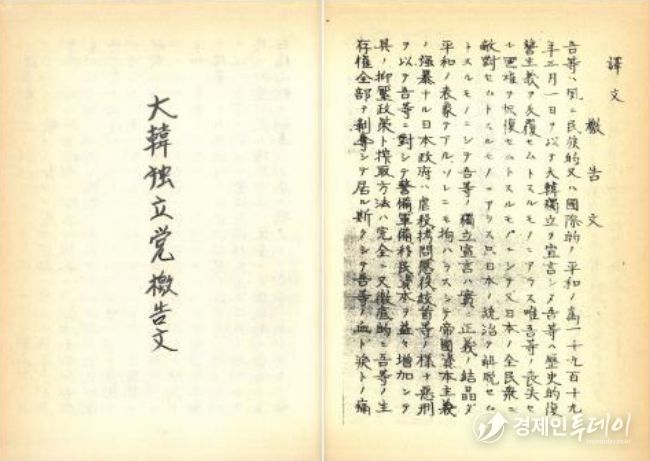 大韓独立党檄告文
譯文
檄告文
吾等ハ夙ニ民族的又ハ國際的ノ平和ノ爲一千九百十九
年三月一日ヲ以テ大韓獨立ヲ宣言シ吾等ハ歴史的復
讐主義ヲ反覆セムトスルモノニアラス唯吾等ノ喪失セ
シ國雄ヲ恢復セムトスルモ
又日本ノ全民衆ニ
敵對セムトスルモノニアラス只日本ノ統治ヲ解脱セム
トスルモノニシテ吾等ノ獨立宣言ハ實ニ正義ノ結晶
平和ノ表象テアルソレニモ拘ハラスシテ帝國資本主義
ノ強暴ナル日本政府ハ虐殺拷問惡役
首等ノ様ナ惡刑
ヲ以テ吾等ニ對シテ警備軍備移民資本ヲ益々増加シテ
其ノ抑壓政策ト搾取方法ハ完全ニ又徹底的ニ吾等ノ生
存權全部ヲ剥奪シテ居ル斯クシテ吾等ノ血ト淚トノ痛
경제인투데이